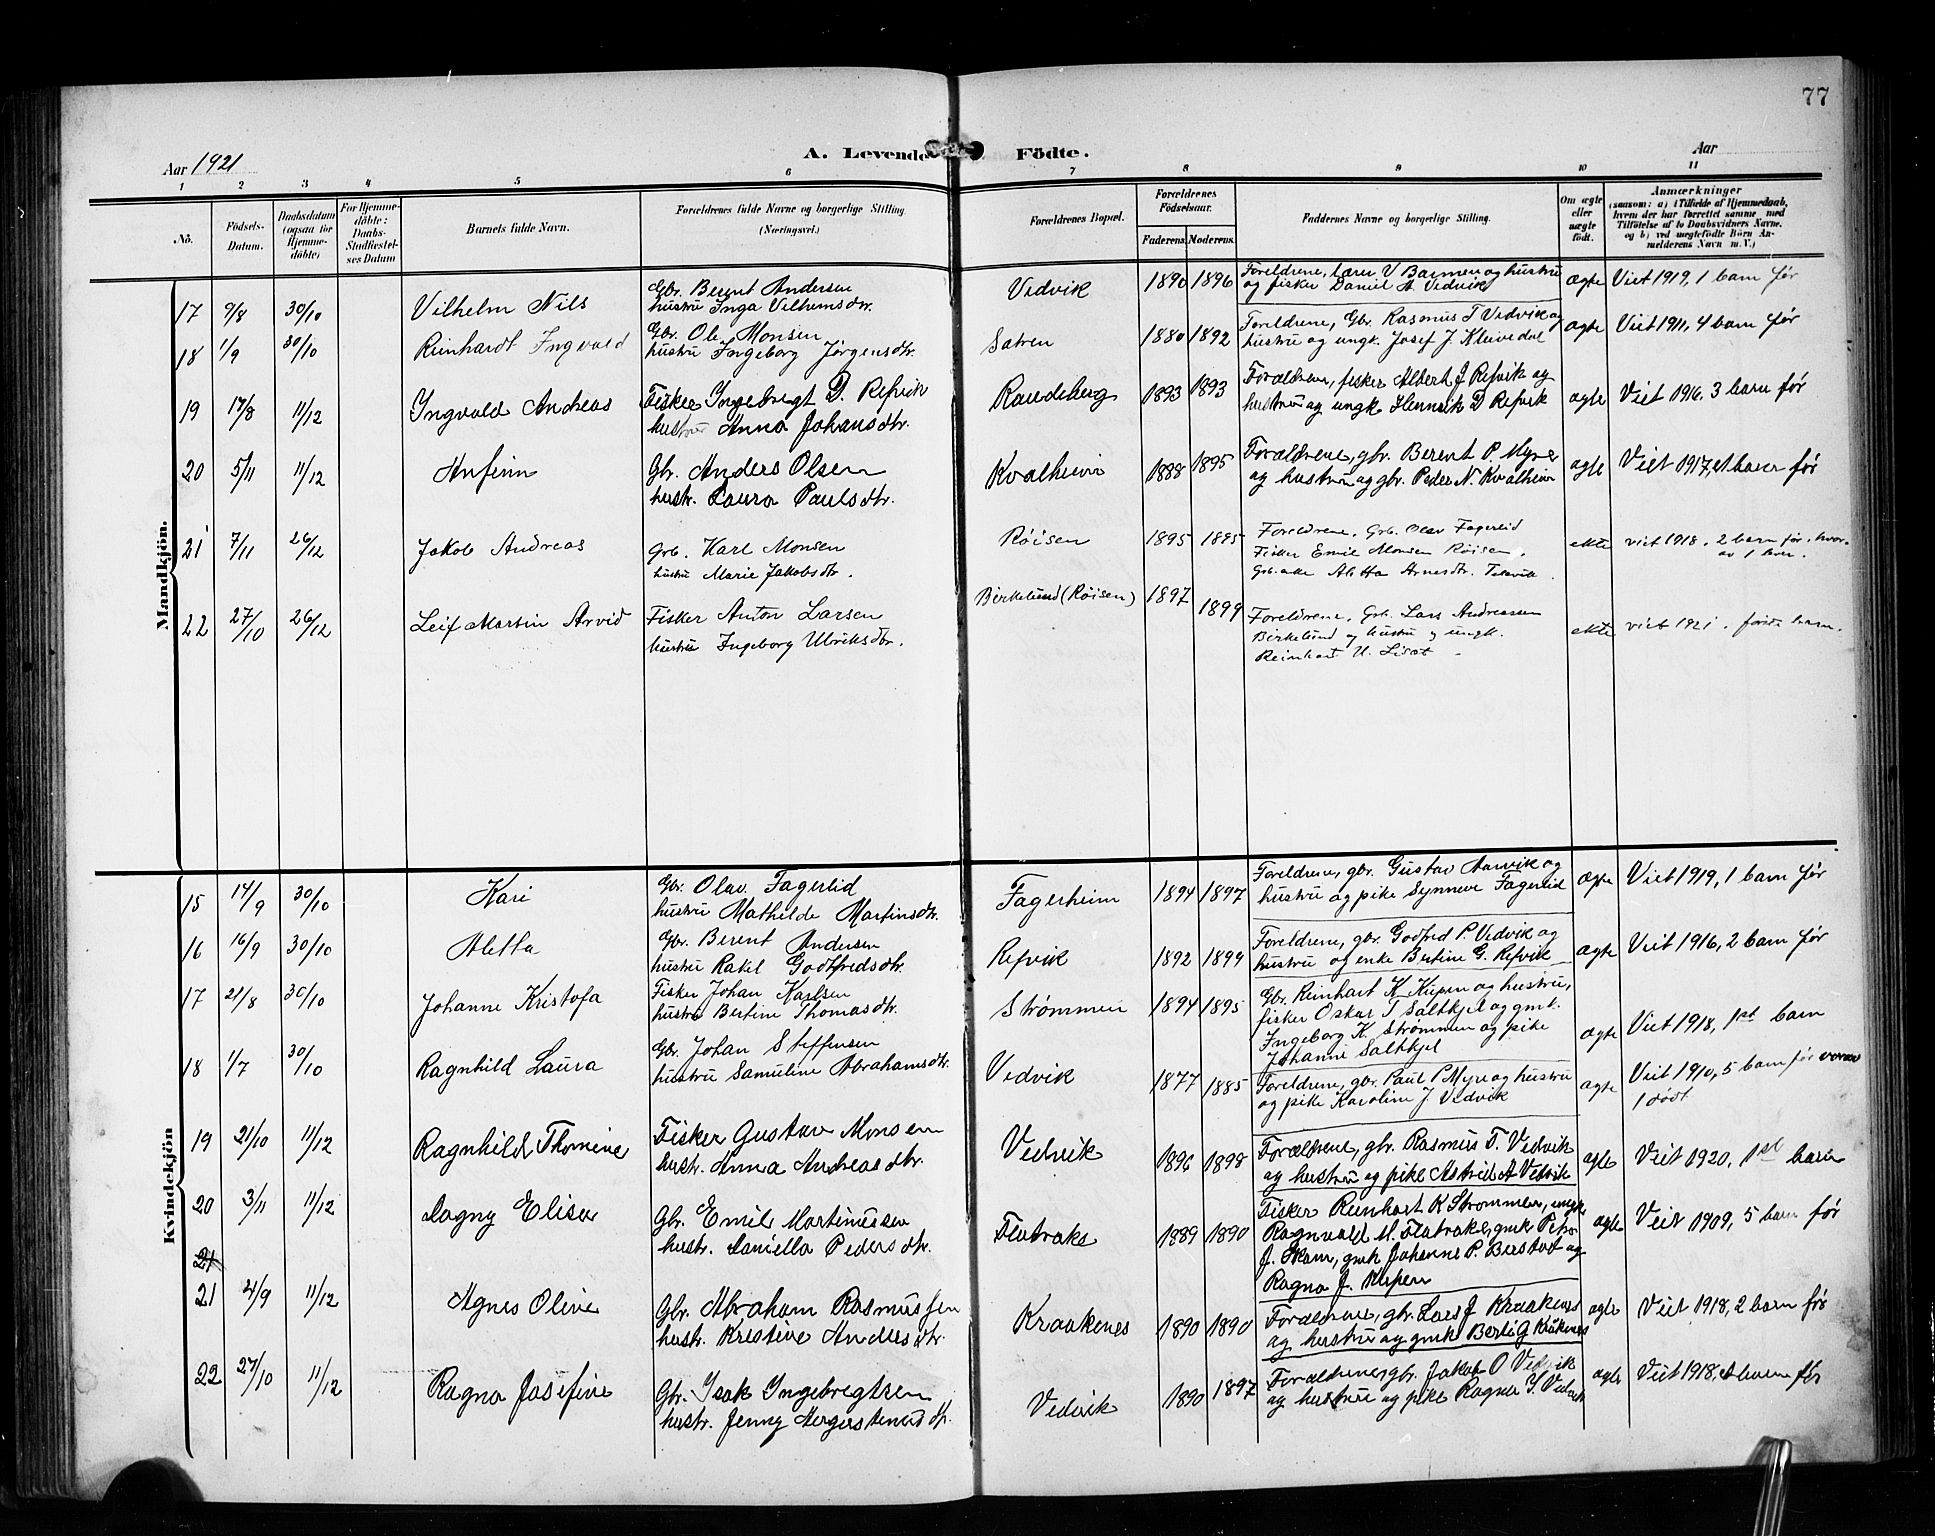 77
Aar 1921
A. Levende Födte.
Aar
1 2 3 4 5 6 7 8 9 10 11
No.
Födsels-Datum.
Daabsdatum (ogsaa for Hjemme-döbte)
For Hjemme-döbte: Daabs-Stadfæstel-ses Datum
Barnets fulde Navn.
Forældrenes fulde Navne og borgerlige Stilling. (Næringsvei.)
Forældrenes Bopæl.
Forældrenes Födselsaar.
Faderens. Moderens.
Faddernes Navne og borgerlige Stilling.
Om ægte eller uægte født.
Anmærkninger
(saasom: a) i Tilfælde af Hjemmedaab, hvem der har forrettet samme, med Tilföielse af to Daabsvidners Navne, og b) ved uegtefödte Börn An-melderens Navn m. V.)
Mandkjön.
17 9/8 30/10 Vilhelm Nils
Gbr. Berent Andersen
hustru Inga Vilhemsdtr.
Vedvik 1890 1896
Foreldrene, lærer V Barmen og hustru
og fisker Daniel A Vedvik
ægte Viet 1919, 1 barn før
18 1/9 30/10 Reinhardt Ingvald
Gbr. Ole Monsen
hustru Ingeborg Jørgensdtr.
Satren 1880 1892
Foreldrene, Gbr. Rasmus T Vedvik og
hustru og ungk. Josef J. Kleivedal
ægte Viet 1911, 4 barn før
19 17/8 11/12 Ingvald Andreas
Fisker Ingebregt D. Refvik
hustru Anna Johansdtr.
Raudeberg 1893 1893
Forældrene, fisker Albert J Refvik og
hustru og ungk Henrik D Refvik
ægte Viet 1916, 3 barn før
20 5/11 11/12 Anfinn
Gbr. Anders Olsen
hustr. Laura Paulsdtr.
Kvalheim 1888 1895
Forældrene, gbr. Berent P. Myre
og hustru og gbr. Peder N. Kvalheim
ægte Viet 1917, et barn før
21 7/11 26/12 Jakob Andreas
Grb. Karl Monsen
hustru Marie Jakobsdtr.
Røisen 1895 1895
Foreldrene, Grb. Olav Fagerlid
Fisker Emil Monsen Røisen.
Grb. enke Aletta Arnesdtr.
ekte viet 1918. 2 barn før, hvor-
av 1 lever.
22 27/10 26/12 Leif Martin Arvid
Fisker Anton Larsen
hustru Ingeborg Ulriksdtr.
Birkelund (Røisen) 1897 1899
Foreldrene, Grb. Lars Andreassen
Birkelund og hustru og ungk.
Reinhart U. Liset
ekte viet 1921. første barn.
Kvindekjön
15 14/9 30/10 Kari
Gbr. Olav Fagerlid
hustru Mathilde Martinsdtr.
Fagerheim 1894 1897
Foreldrene, gbr. Gustav Aarvik og
hustru og pike Synneve Fagerlid
ægte Viet 1919, 1 barn før
16 16/9 30/10 Aletta
Gbr. Berent Andersen
hustru Rakel Godtfredsdtr.
Refvik 1892 1899
Foreldrene, gbr. Godfred P. Vedvik og
hustru og enke Bertine G. Refvik
ægte Viet 1916, 2 barn før
17 21/8 30/10 Johanne Kristofa
Fisker Johan Karlsen
hustru Bertine Thomasdtr.
Strømmen 1894 1895
Gbr. Reinhart K. Kupen og hustru,
fisker Oskar T Saltkjel og gmk.
Ingeborg K. Strømmen og pike
Johanne Saltkjel
ægte Viet 1918, 1st barn
18 1/7 30/10 Ragnhild Laura
Gbr. Johan Steffensen
hustru Samuline Abrahamsdtr.
Vedvik 1877 1885
Foreldrene, gbr. Paul P Myre og hustru
og pike Karoline J. Vedvik
ægte Viet 1910, 5 barn før
1 dødt
19 21/10 11/12 Ragnhild Thomine
Fisker Gustav Monsen
hustr. Anna Andreasdtr.
Vedvik 1896 1898
Forældrene, gbr. Rasmus T. Vedvik
og hustru og pike Astrid A Vedvik
ægte Viet 1920, 1st barn
20 3/11 11/12 Dagny Elise
Gbr. Emil Martinussen
hustr. Daniella Pedersdtr.
Flatraket 1889 1890
Fisker Reinhart K Strømmen, ungk
Ragnvald M. Flatraket, gmk Petra
J. Skaar, gmk Johanne P. Berstad og
Ragna J. Kupen
ægte Viet 1909, 5 barn før
21
21 4/9 11/12 Agnes Oline
Gbr. Abraham Rasmussen
hustr. Kristine Andersdtr.
Kraakenes 1890 1890
Forældrene, gbr. Lars J Kraakenes
og hustru og gmk Berte G Kråkenes
ægte Viet 1918, 2 barn før
22 27/10 11/12 Ragna Josefine
Gbr. Isak Ingebregtsen
hustr. Jenny
Vedvik 1890 1897
Forældrene, gbr. Jakob O Vedvik
og hustru og pike Ragna I. Vedvik
ægte Viet 1918, et barn før